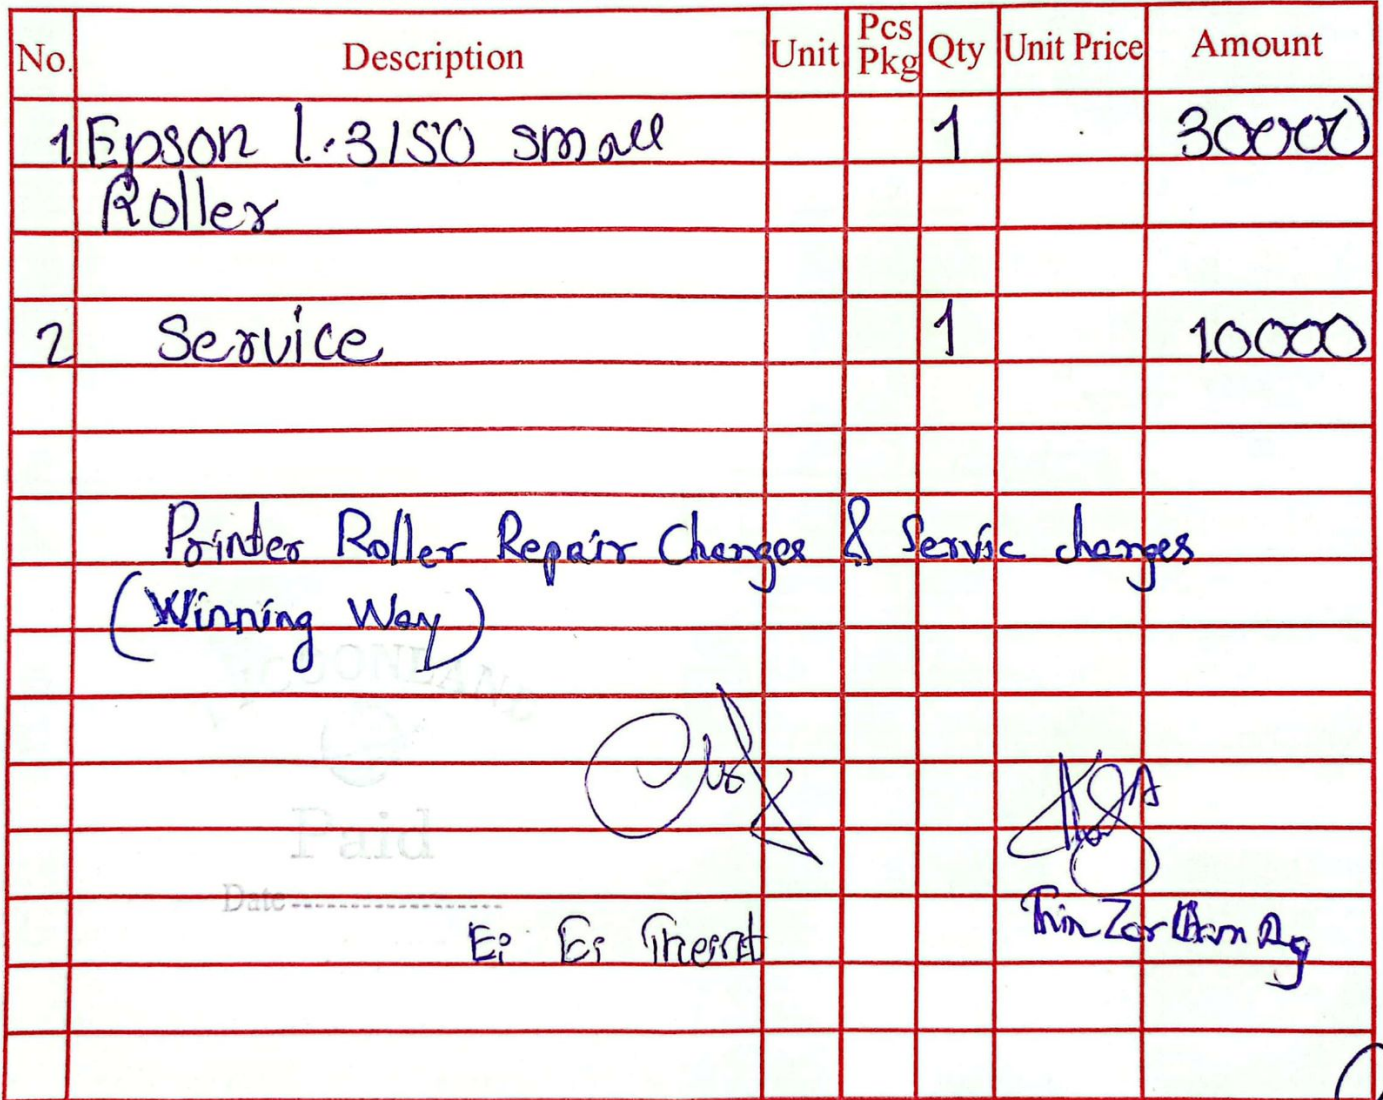 No. Description Unit Pcs Pkg Qty Unit Price Amount
1 Epson L.3150 small 1 30000
Roller
2 Service 1 10000
Printer Roller Repair Charges & Servic charges
(Winning Way)
Paid
Date
Ei Ei Theint
Thin Zar